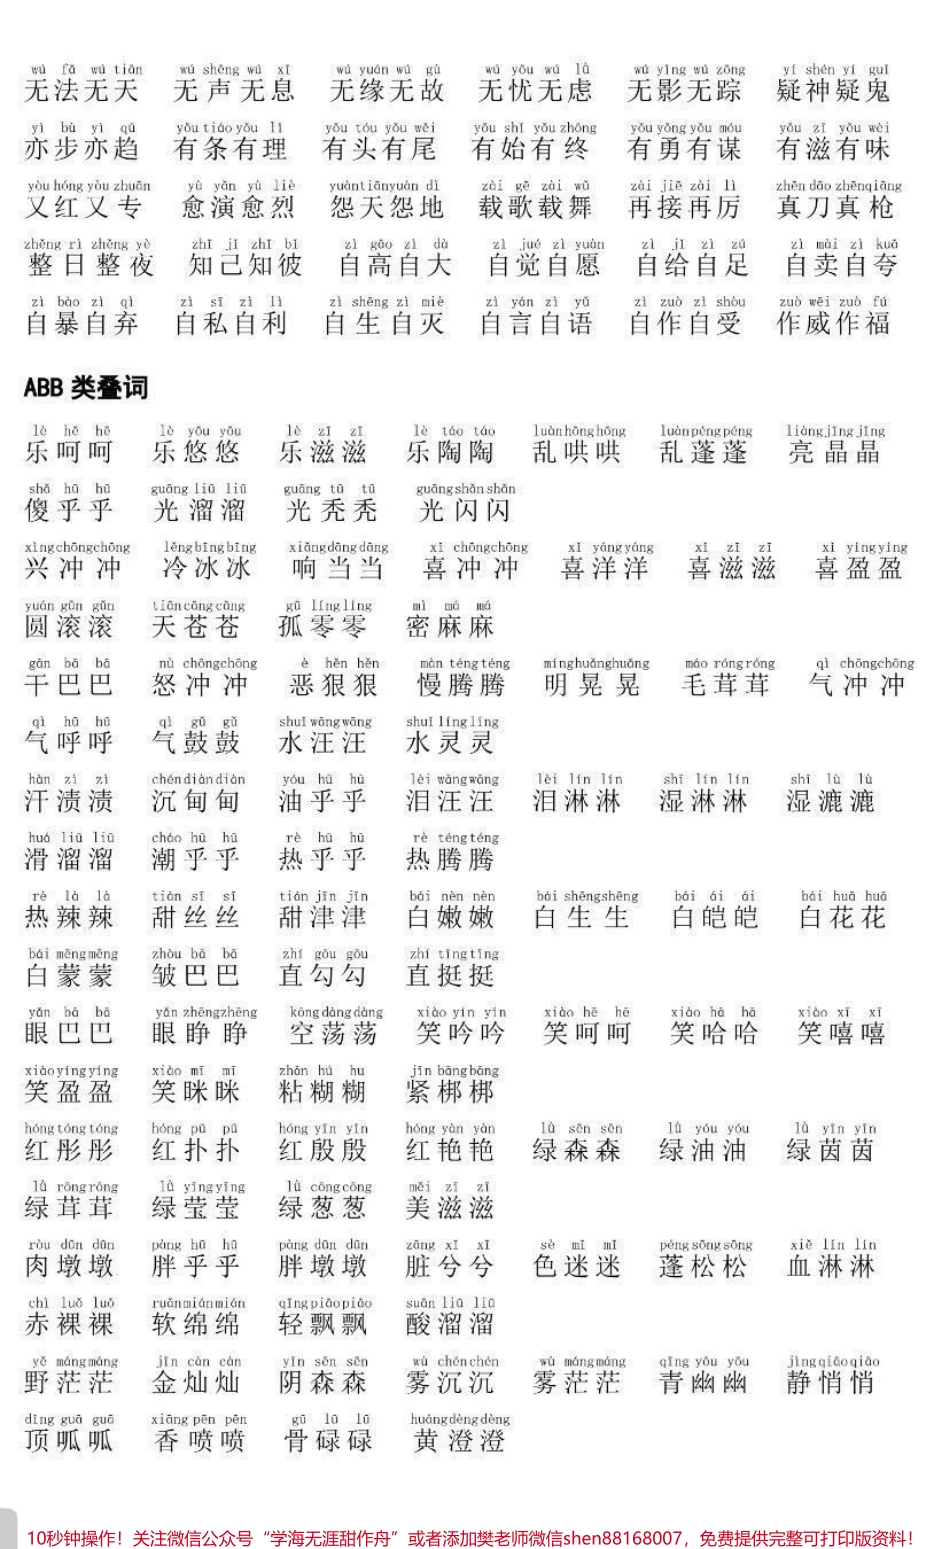 wú fǎ wú tiān wú shēng wú xī wú yuán wú gù wú yōu wú lǜ wú yǐng wú zōng yí shén yí guǐ
无法无天 无声无息 无缘无故 无忧无虑 无影无踪 疑神疑鬼
yì bù yì qū yǒu tiáo yǒu lǐ yǒu tóu yǒu wěi yǒu shǐ yǒu zhōng yǒu yǒng yǒu móu yǒu zī yǒu wèi
亦步亦趋 有条有理 有头有尾 有始有终 有勇有谋 有滋有味
yòu hóng yòu zhuān yù yǎn yù liè yuàn tiān yuàn dì zài gē zài wǔ zài jiē zài lì zhēn dāo zhēn qiāng
又红又专 愈演愈烈 怨天怨地 载歌载舞 再接再厉 真刀真枪
zhěng rì zhěng yè zhī jǐ zhī bǐ zì gāo zì dà zì jué zì yuàn zì jǐ zì zú zì mài zì kuā
整日整夜 知己知彼 自高自大 自觉自愿 自给自足 自卖自夸
zì bào zì qì zì sī zì lì zì shēng zì miè zì yán zì yǔ zì zuò zì shòu zuò wēi zuò fú
自暴自弃 自私自利 自生自灭 自言自语 自作自受 作威作福
ABB 类叠词
lè hē hē lè yōu yōu lè zī zī lè táo táo luàn hōng hōng luàn péng péng liàng jīng jīng
乐呵呵 乐悠悠 乐滋滋 乐陶陶 乱哄哄 乱蓬蓬 亮晶晶
shǎ hū hū guāng liū liū guāng tū tū guāng shǎn shǎn
傻乎乎 光溜溜 光秃秃 光闪闪
xìng chōng chōng lěng bīng bīng xiǎng dāng dāng xǐ chōng chōng xǐ yáng yáng xǐ zī zī xǐ yíng yíng
兴冲冲 冷冰冰 响当当 喜冲冲 喜洋洋 喜滋滋 喜盈盈
yuán gǔn gǔn tiān cāng cāng gū líng líng mì má má
圆滚滚 天苍苍 孤零零 密麻麻
gān bā bā nù chōng chōng è hěn hěn màn téng téng míng huǎng huǎng máo róng róng qì chōng chōng
干巴巴 怒冲冲 恶狠狠 慢腾腾 明晃晃 毛茸茸 气冲冲
qì hū hū qì gǔ gǔ shuǐ wāng wāng shuǐ líng líng
气呼呼 气鼓鼓 水汪汪 水灵灵
hàn zì zì chén diàn diàn yóu hū hū lèi wāng wāng lèi lín lín shī lín lín shī lù lù
汗渍渍 沉甸甸 油乎乎 泪汪汪 泪淋淋 湿淋淋 湿漉漉
huá liū liū cháo hū hū rè hū hū rè téng téng
滑溜溜 潮乎乎 热乎乎 热腾腾
rè là là tián sī sī tián jīn jīn bái nèn nèn bái shēng shēng bái ái ái bái huā huā
热辣辣 甜丝丝 甜津津 白嫩嫩 白生生 白皑皑 白花花
bái mēng mēng zhòu bā bā zhí gōu gōu zhí tǐng tǐng
白蒙蒙 皱巴巴 直勾勾 直挺挺
yǎn bā bā yǎn zhēng zhēng kōng dàng dàng xiào yín yín xiào hē hē xiào hā hā xiào xī xī
眼巴巴 眼睁睁 空荡荡 笑吟吟 笑呵呵 笑哈哈 笑嘻嘻
xiào yíng yíng xiào mī mī zhān hú hu jǐn bāng bāng
笑盈盈 笑眯眯 粘糊糊 紧梆梆
hóng tóng tóng hóng pū pū hóng yīn yīn hóng yàn yàn lǜ sēn sēn lǜ yóu yóu lǜ yīn yīn
红彤彤 红扑扑 红殷殷 红艳艳 绿森森 绿油油 绿茵茵
lǜ rōng rōng lǜ yīng yīng lǜ cōng cōng měi zī zī
绿茸茸 绿莹莹 绿葱葱 美滋滋
ròu dūn dūn pàng hū hū pàng dūn dūn zāng xī xī sè mī mī péng sōng sōng xiě lín lín
肉墩墩 胖乎乎 胖墩墩 脏兮兮 色迷迷 蓬松松 血淋淋
chì luǒ luǒ ruǎn mián mián qīng piāo piāo suān liū liū
赤裸裸 软绵绵 轻飘飘 酸溜溜
yě máng máng jīn càn càn yīn sēn sēn wù chén chén wù máng máng qīng yōu yōu jìng qiāo qiāo
野茫茫 金灿灿 阴森森 雾沉沉 雾茫茫 青幽幽 静悄悄
dǐng guā guā xiāng pēn pēn gǔ lū lū huáng dèng dèng
顶呱呱 香喷喷 骨碌碌 黄澄澄
10秒钟操作！关注微信公众号“学海无涯甜作舟”或者添加樊老师微信shen88168007，免费提供完整可打印版资料！